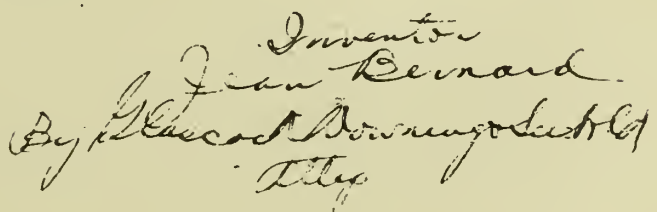 Inventor
Jean Bernard
By Glascock Downing & Seebold
Attys